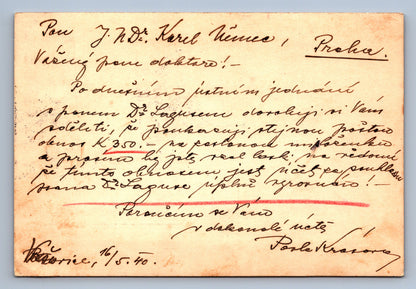 Pan J.U.Dr. Karel Němec,
Praha.
Vážený pane doktore! –
Po dnešním ústním jednání
s panem Dr. Lagusem dovoluji si Vám
sděliti, že poukazuji stejnou poštou
obnos K 350.– na
a prosím by jste vzal lask. na vědomí
že tímto obnosem jest účet po
pana Dr Laguse úplně vyrovnán! –
Poroučím se Vám
v dokonalé úctě
16/5. 40.